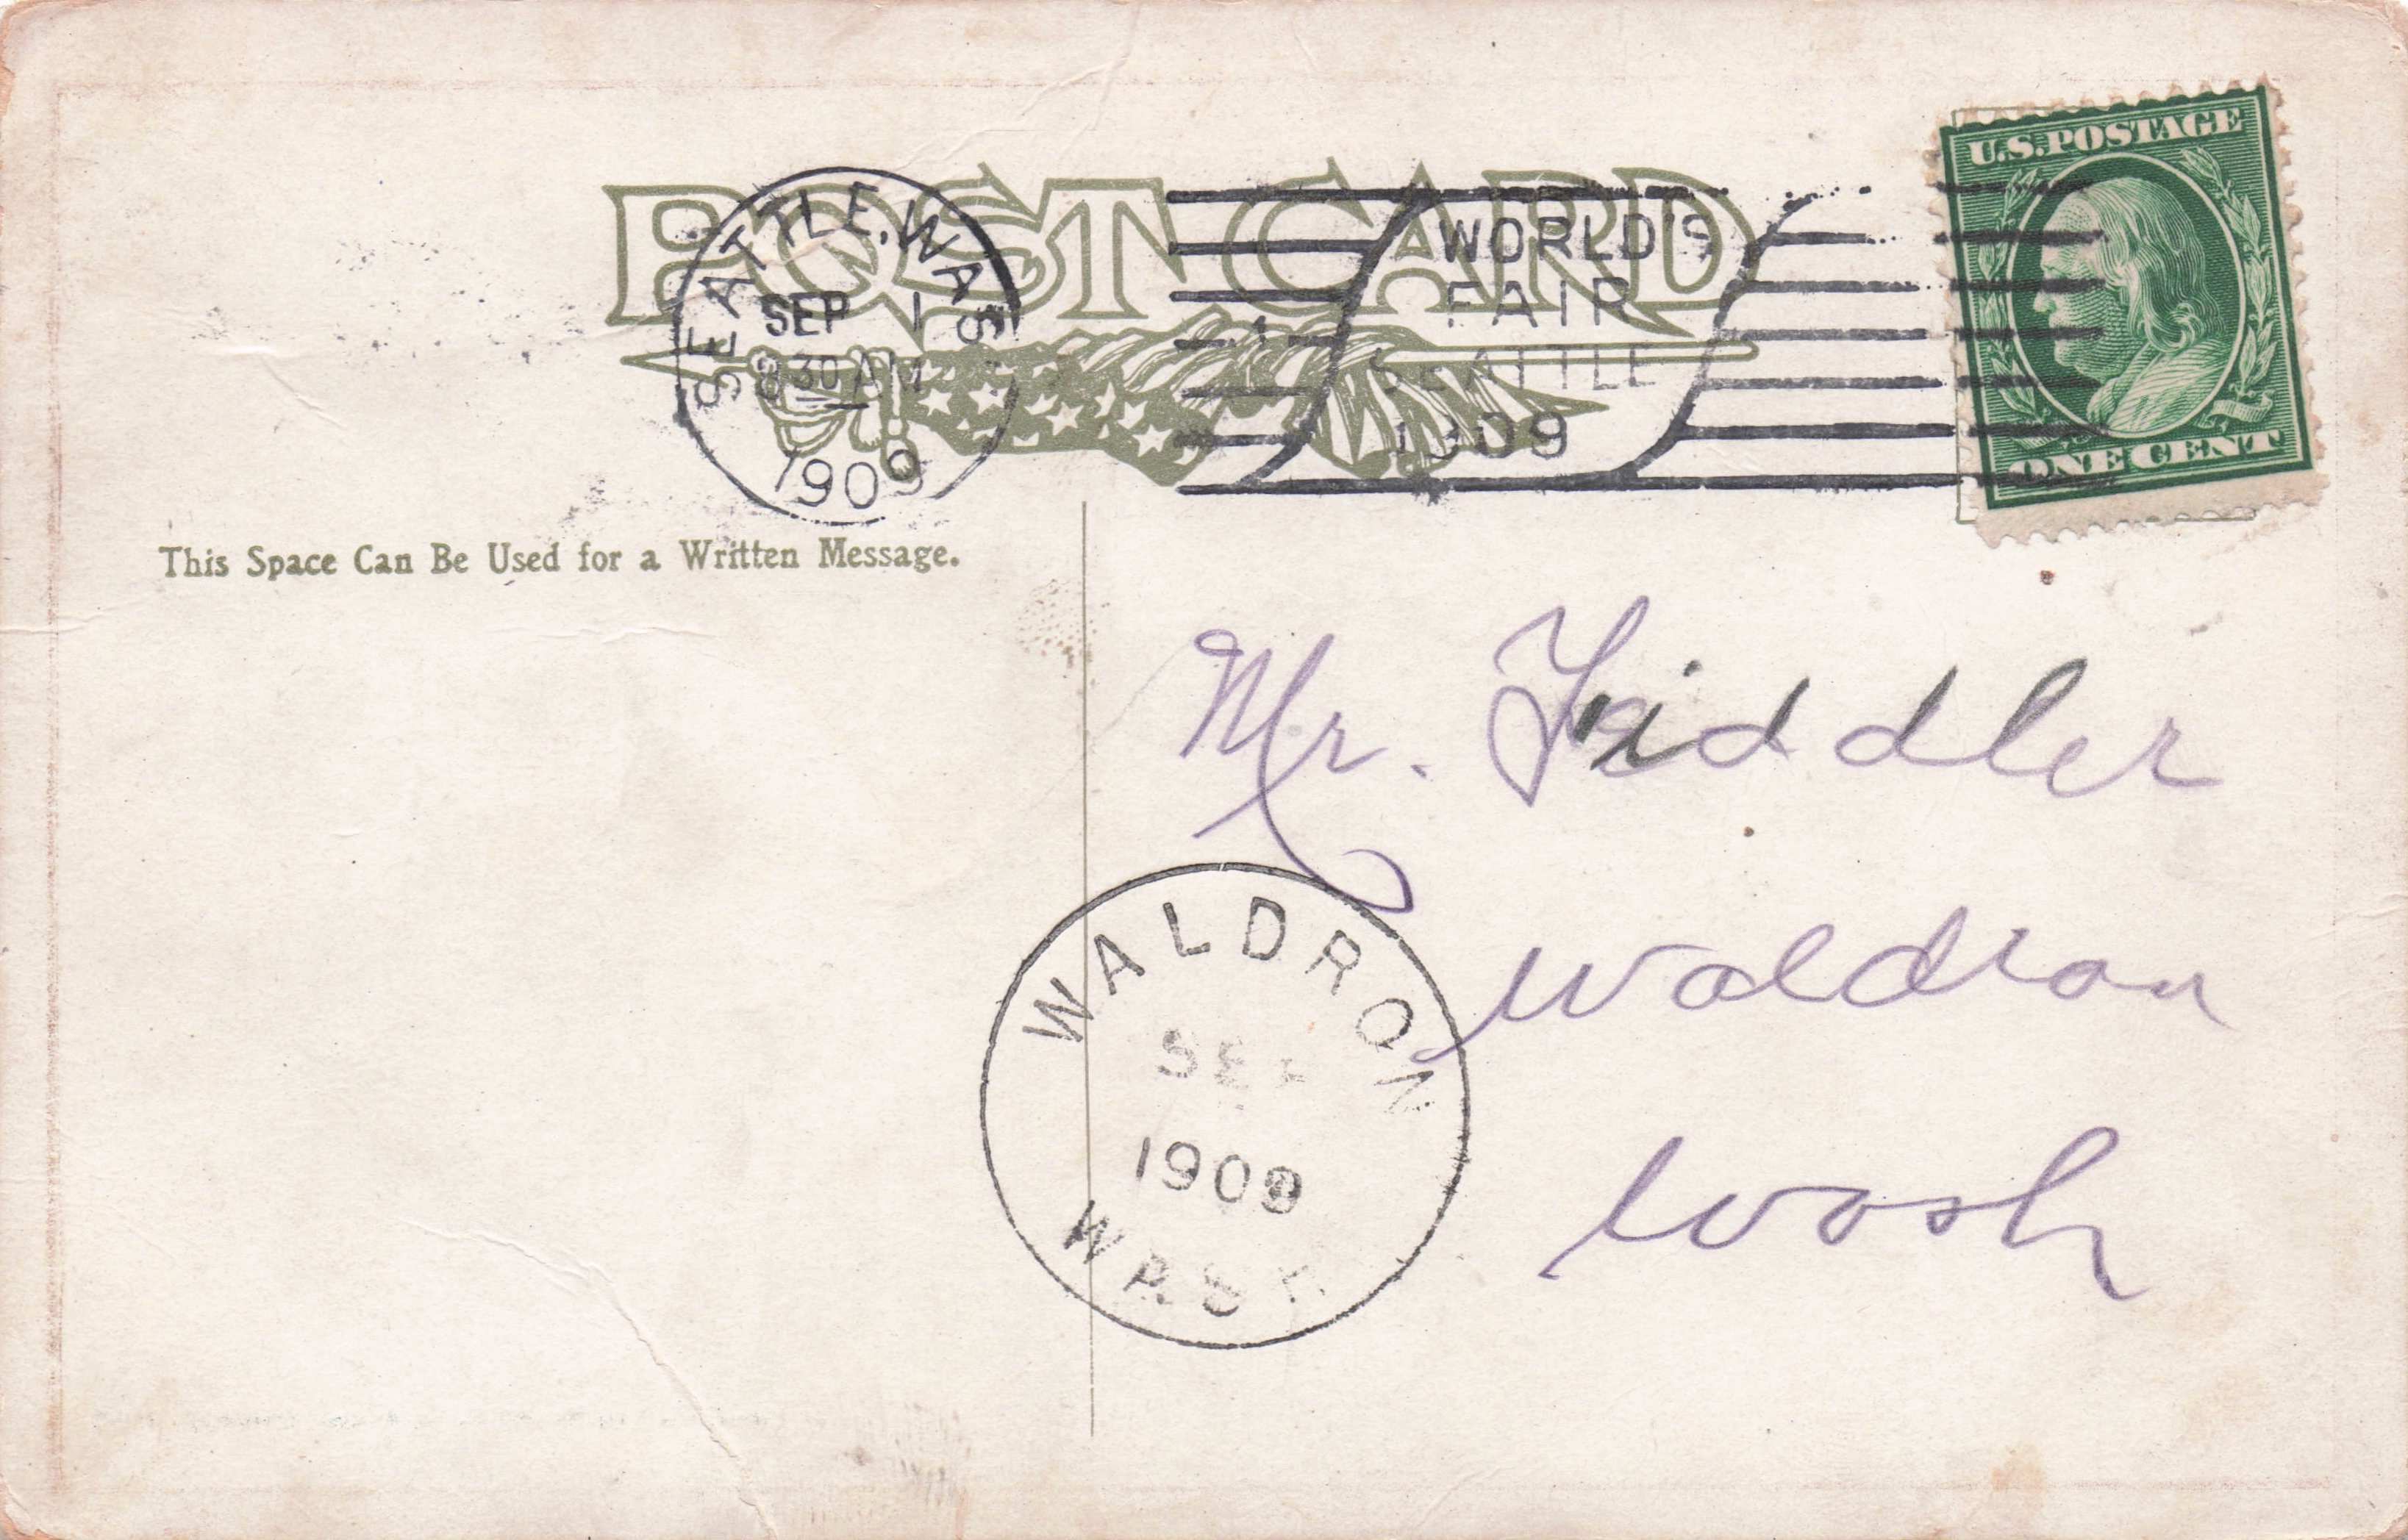 POST CARD
SEATTLE, WASH
SEP 1
8 30 AM
1909
WORLD'S
FAIR
SEATTLE
1909
U.S. POSTAGE
ONE CENT
This Space Can Be Used for a Written Message.
Mr. Fiddler
Waldron
Wash
WALDRON
SEP
1909
WASH